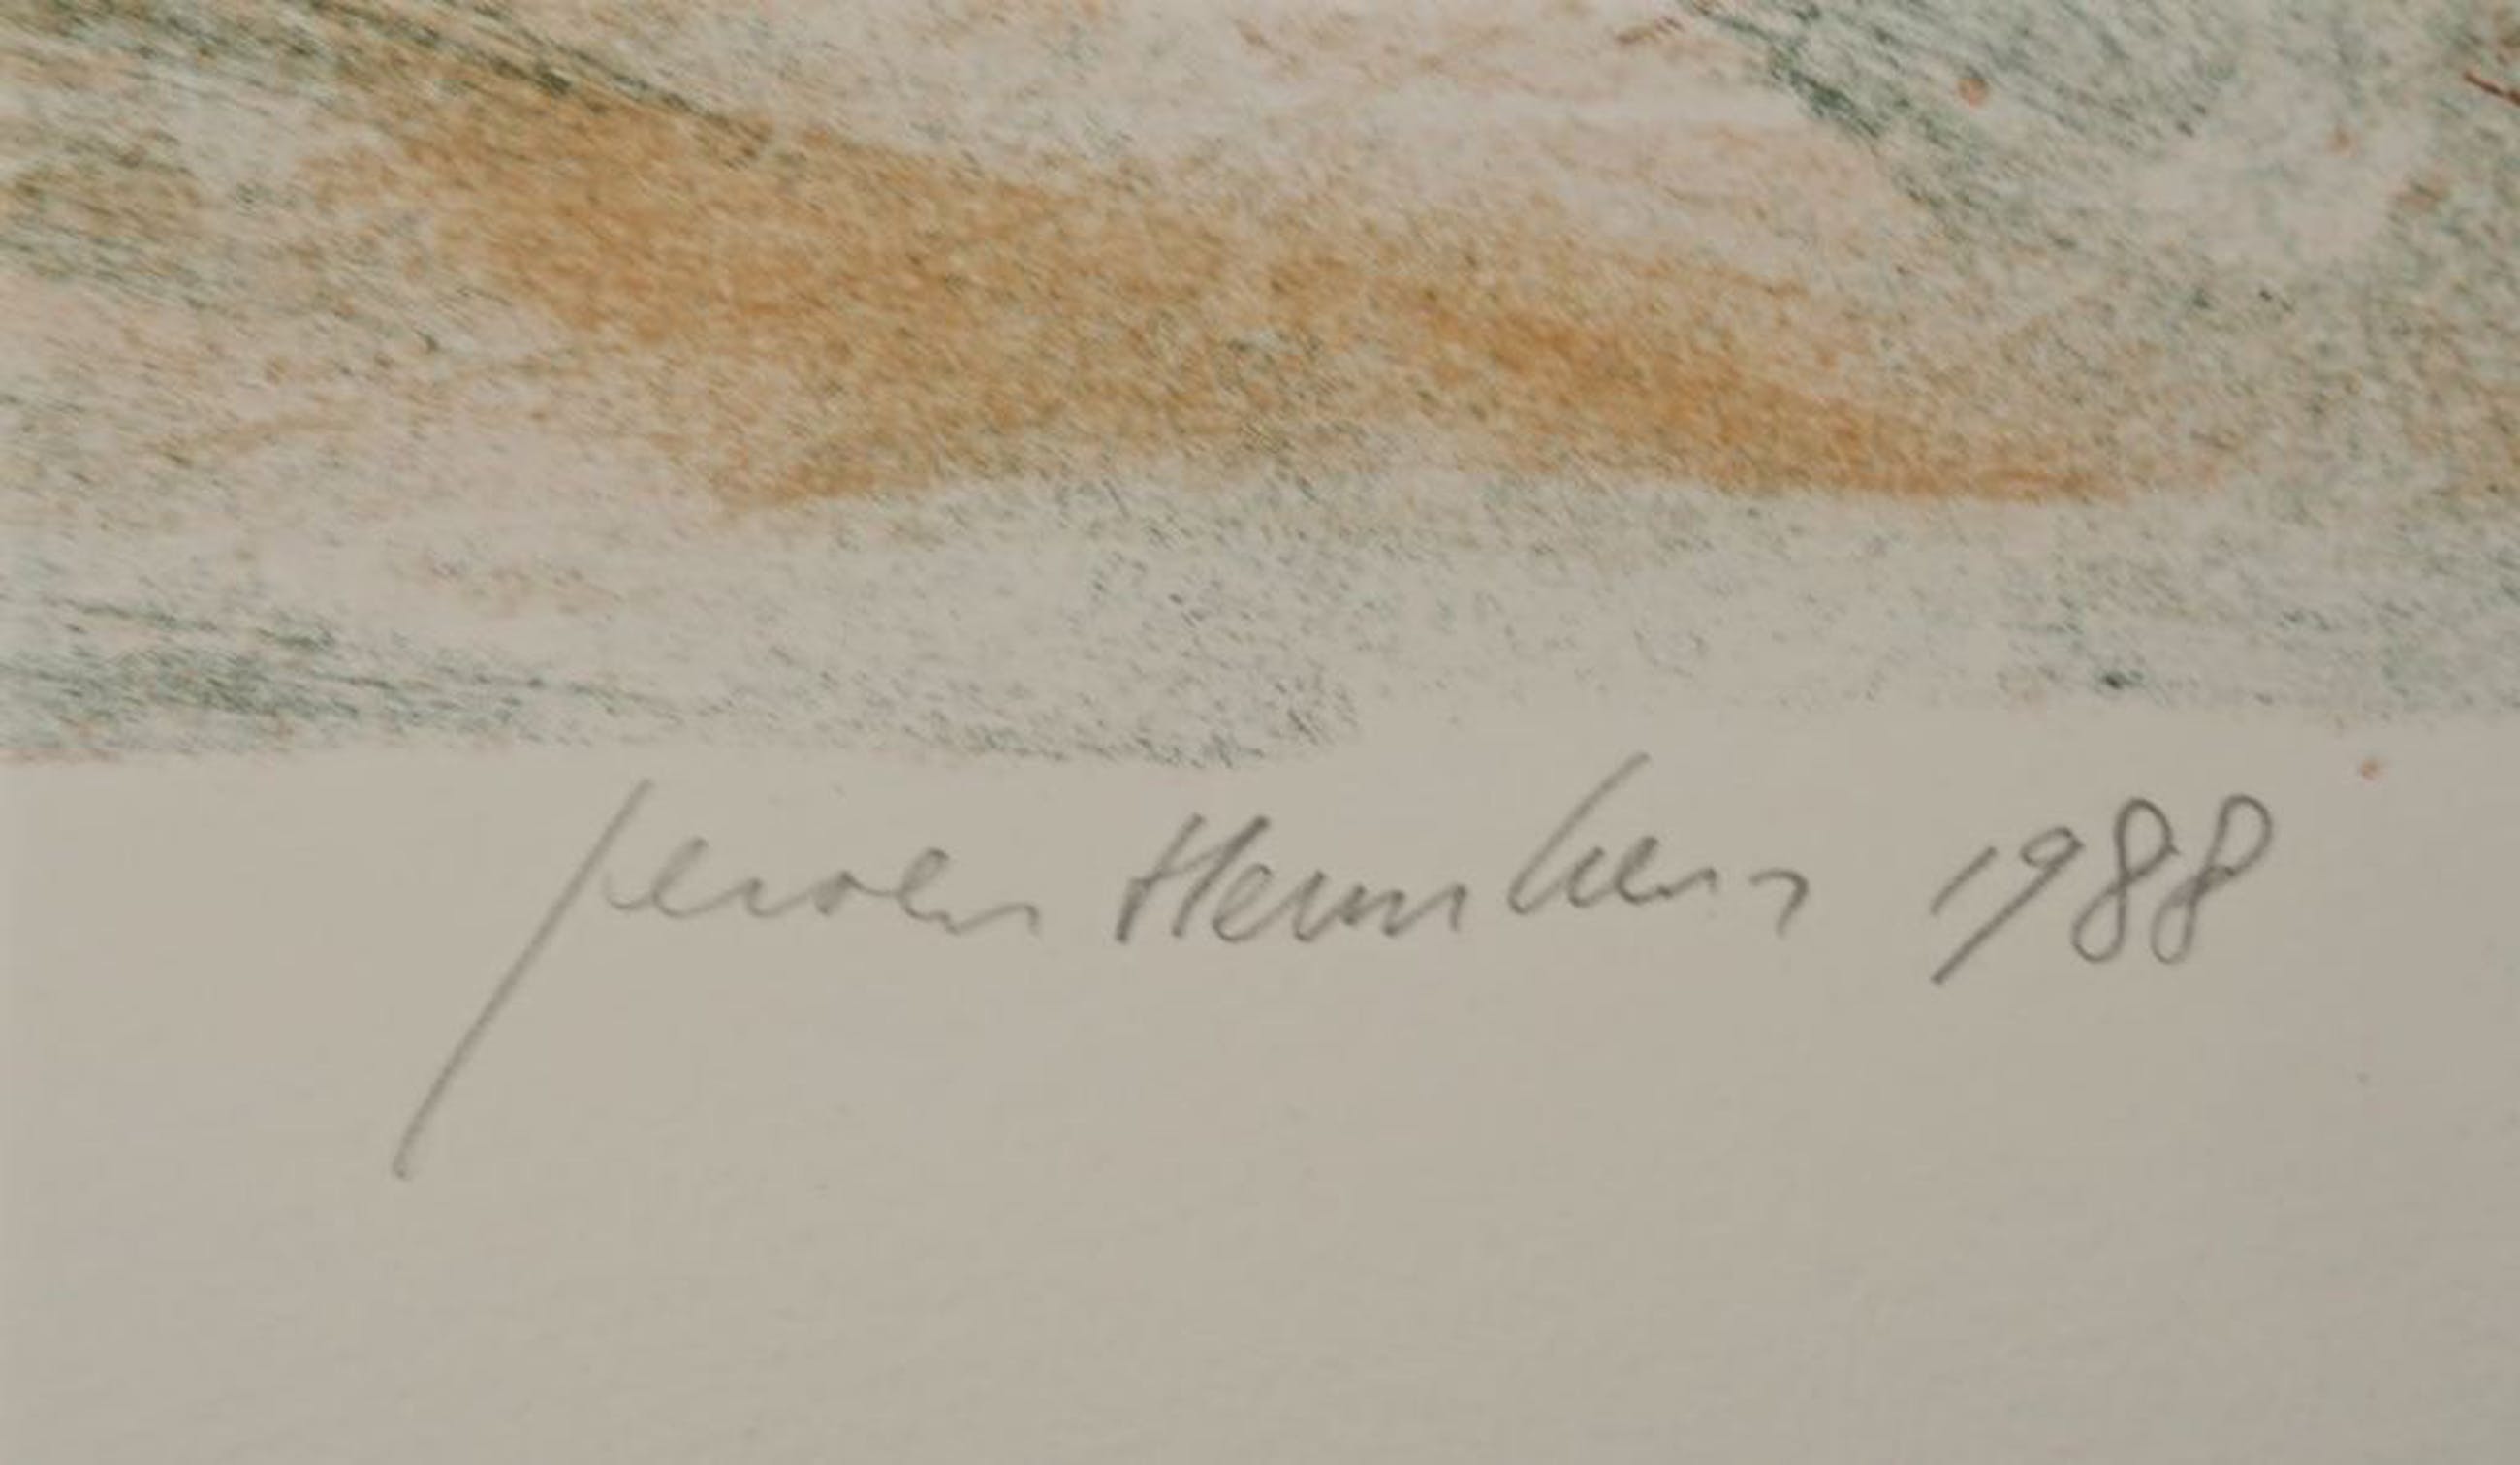 Jeroen Henneman 1988